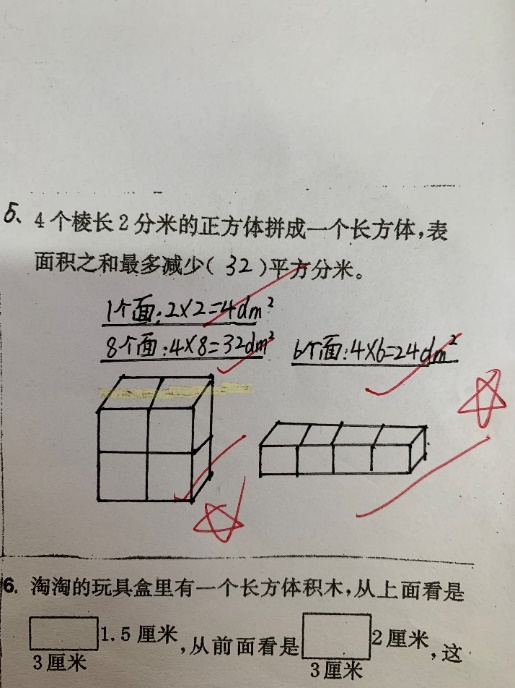 5、4个棱长2分米的正方体拼成一个长方体,表
面积之和最多减少(32)平方分米。
1个面:2×2=4dm²
8个面:4×8=32dm² 6个面:4×6=24dm²
6. 淘淘的玩具盒里有一个长方体积木,从上面看是
1.5厘米,从前面看是 2厘米,这
3厘米 3厘米